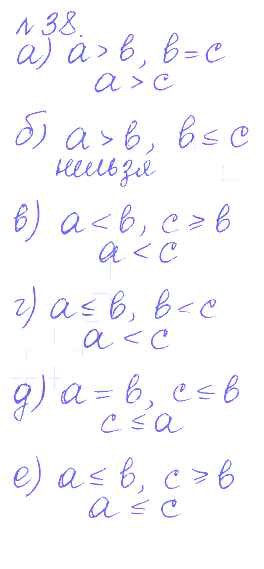 № 38.
а) a > b, b = c
a > c
б) a > b, b ≤ c
нельзя
в) a < b, c ≥ b
a < c
г) a ≤ b, b < c
a < c
д) a = b, c ≤ b
c ≤ a
е) a ≤ b, c ≥ b
a ≤ c